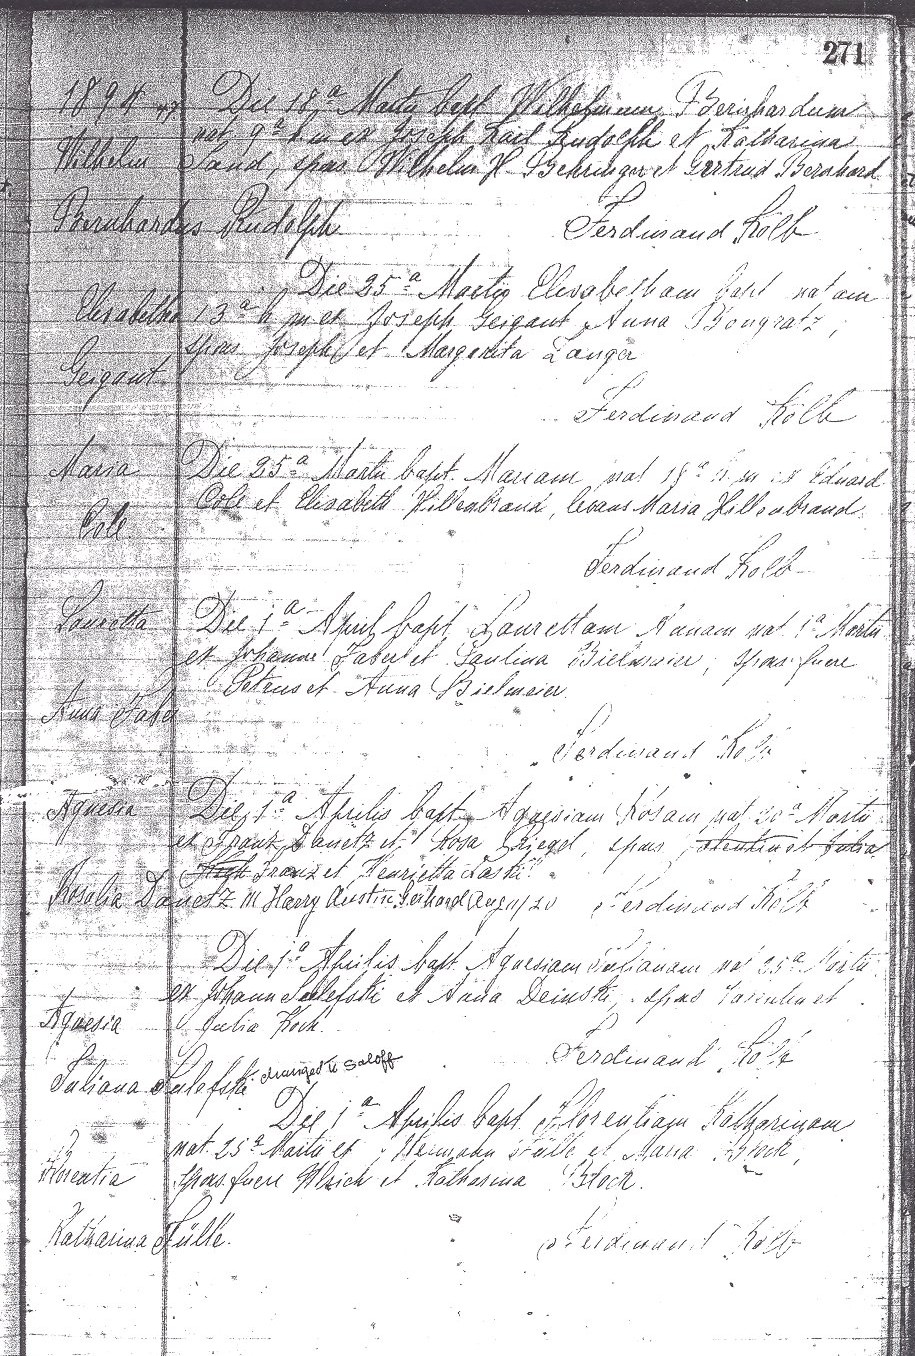 271
1894
Die 18a Martii bapt Wilhelmum Bernhardum
nat 9a h m ex Joseph Karl Rudolph et Katharina
Wilhelm Sand, spons Wilhelm H Behringer et Gertrud Bernhard
Bernhardus Rudolph Ferdinand Kolb
Die 25a Martii Elisabetham bapt natam
Elisabetha 13a h m ex Joseph Geigant Anna Bongratz,
spons Joseph et Margarita Langer
Geigant
Ferdinand Kolb
Maria Die 25a Martii bapt. Mariam nat 18a h m ex Eduard
Cole et Elisabeth Hillenbrand, levans Maria Hillenbrand.
Cole
Ferdinand Kolb
Lauretta Die 1a April bapt Laurettam Annam nat 1a Martii
ex Johanne Faber et Paulina Bielmeier, spons fuere
Petrus et Anna Bielmeier
Anna Faber
Ferdinand Kolb
Agnesia Die 1a Aprilis bapt Agnesiam Rosam nat 20a Martii
ex Franz Danetz et Rosa Riegel, spons et Julia
Franz et Henrietta
Rosalia Danetz m Harry Austin Aug 11/20 Ferdinand Kolb
Die 1a Aprilis bapt Agnesiam Julianam nat 25a Martii
ex Johann Sulefski et Anna Deinski, spons et
Agnesia Julia Koch
Ferdinand Kolb
Juliana Sulefski changed to Saloff
Die 1a Aprilis bapt Florentiam Katharinam
nat 25a Martii ex Hermann Fülle et Maria Block,
Florentia spons fuere Ulrich et Katharina Block.
Katharina Fülle. Ferdinand Kolb